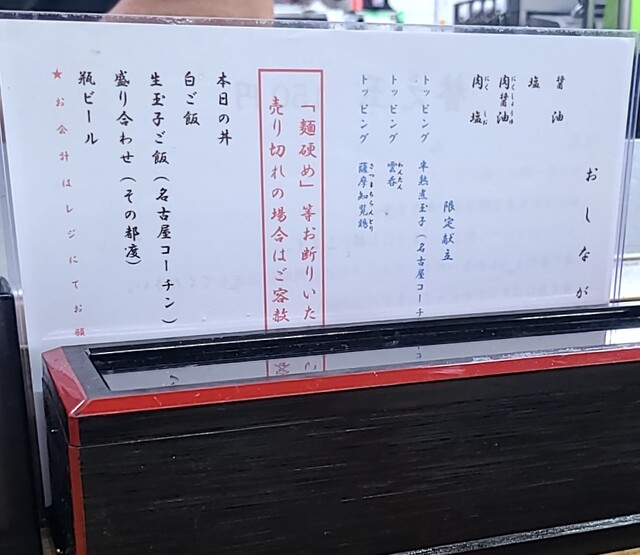 おしなが
醤油
塩
肉醤油
にくしょうゆ
肉塩
にくしお
限定献立
トッピング 半熟煮玉子(名古屋コーチ
トッピング 雲呑
わんたん
トッピング 薩摩知覧鶏
さつまちらんどり
「麺硬め」等お断りいた
売り切れの場合はご容赦
本日の丼
白ご飯
生玉子ご飯(名古屋コーチン)
盛り合わせ(その都度)
瓶ビール
★お会計はレジにてお願